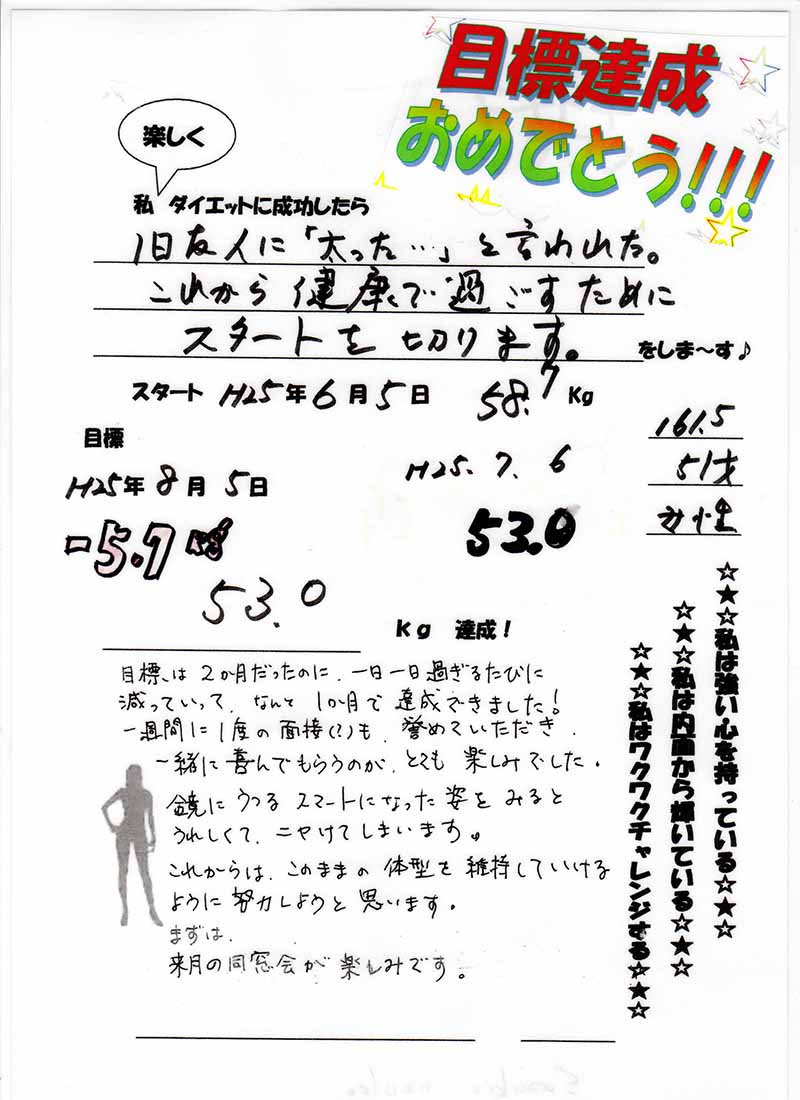 目標達成
おめでとう!!!
楽しく
私 ダイエットに成功したら
1日友人に「太った…」と言われた。
これから健康で過ごすために
スタートを切ります。
をしま～す♪
スタート H25年6月5日 58.7Kg
161.5
51才
女性
目標
H25年8月5日
H25.7.6
-5.7kg
53.0
53.0
kg 達成!
目標は2か月だったのに、一日一日過ぎるたびに
減っていって、なんと1か月で達成できました!
一週間に1度の面接(?)も、誉めていただき、
一緒に喜んでもらうのが、とても楽しみでした。
鏡にうつるスマートになった姿をみると
うれしくて、ニヤけてしまいます。
これからは、このままの体型を維持していける
ように努力しようと思います。
まずは、
来月の同窓会が楽しみです。
☆★☆私は強い心を持っている☆★☆
☆★☆私は内面から輝いている☆★☆
☆★☆私はワクワクチャレンジする☆★☆